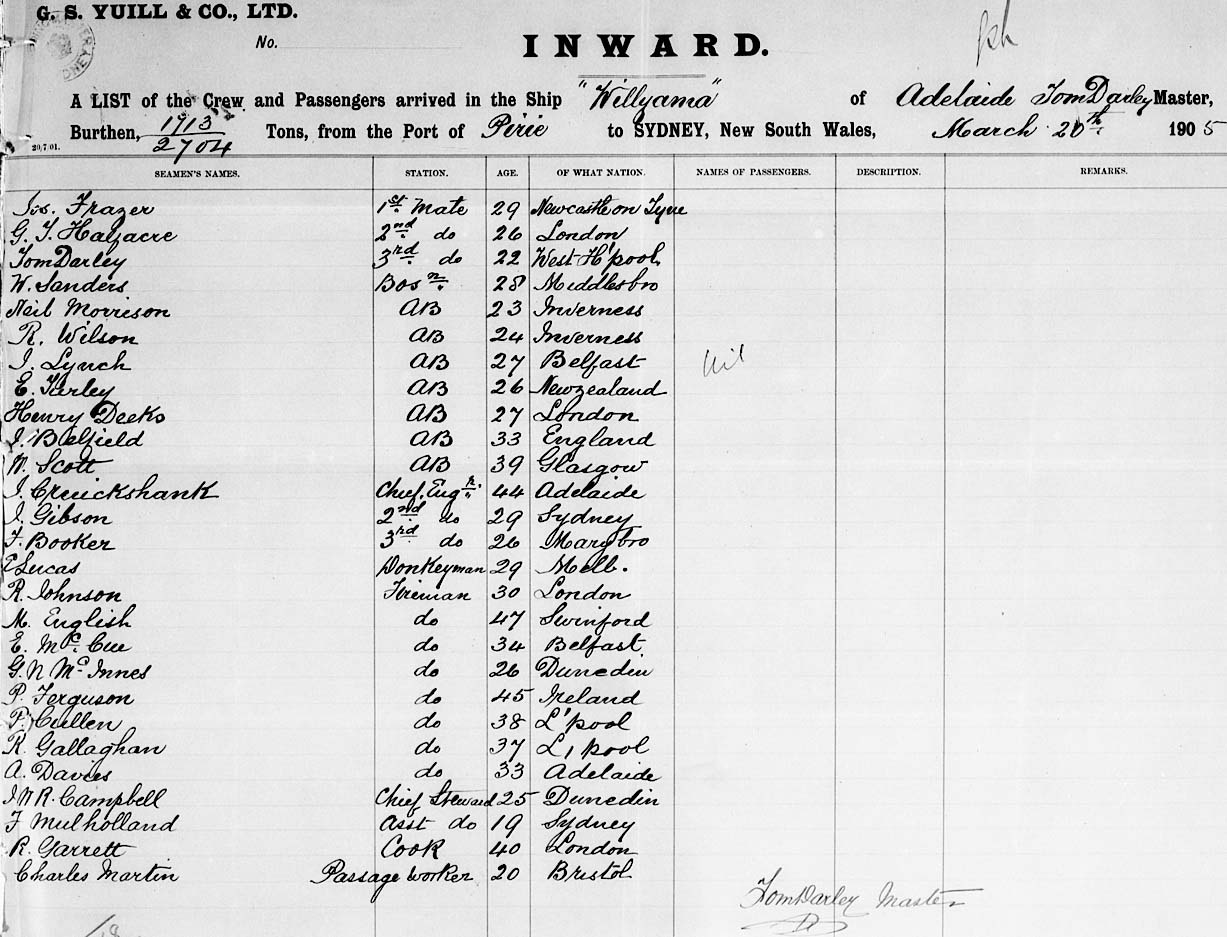 G. S. YUILL & CO., LTD.
No.
INWARD.
A LIST of the Crew and Passengers arrived in the Ship "Willyama" of Adelaide Tom Darley Master,
Burthen, 1913 / 2704 Tons, from the Port of Pirie to SYDNEY, New South Wales, March 20th 1905
20/7/01.
SEAMEN'S NAMES. STATION. AGE. OF WHAT NATION. NAMES OF PASSENGERS. DESCRIPTION. REMARKS.
Jos. Frazer 1st Mate 29 Newcastle on Tyne
G. T. Halfacre 2nd do 26 London
Tom Darley 3rd do 22 West H'pool
W. Sanders Bosn 28 Middlesbro
Neil Morrison AB 23 Inverness
R. Wilson AB 24 Inverness
J. Lynch AB 27 Belfast Nil
E. Turley AB 26 Newzealand
Henry Deeks AB 27 London
J. Belfield AB 33 England
W. Scott AB 39 Glasgow
J. Cruickshank Chief Engr 44 Adelaide
J. Gibson 2nd do 29 Sydney
F. Booker 3rd do 26 Marybro
E Lucas Donkeyman 29 Melb.
R. Johnson Fireman 30 London
M. English do 47 Swinford
E. McCue do 34 Belfast
G. N McInnes do 26 Dunedin
P. Ferguson do 45 Ireland
P. Cullen do 38 L'pool
R. Gallaghan do 37 L'pool
A. Davies do 33 Adelaide
J N R. Campbell Chief Steward 25 Dunedin
F Mulholland Asst do 19 Sydney
R. Garrett Cook 40 London
Charles Martin Passage worker 20 Bristol
Tom Darley Master